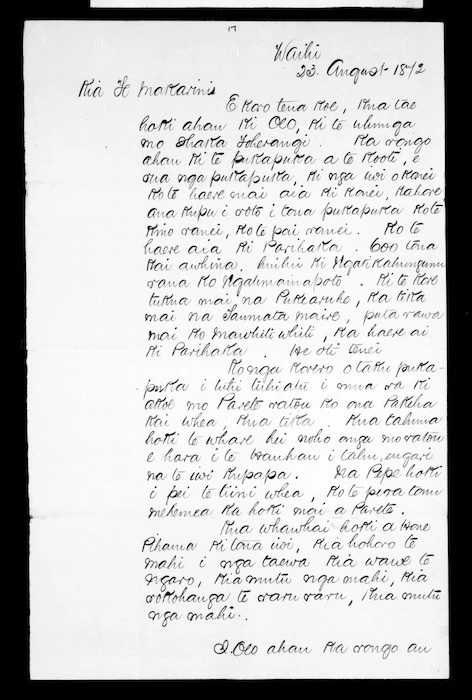 Waihi
23. August 1872
Kia Te Makarini
E koro tena koe, Kua tae
hoki ahau ki Oeo, ki te uhunga
mo Ihaka. Ka rongo
ahau ki te pukapuka a te Kooti, e
rua nga pukapuka, ki nga iwi o konei
ko te haere mai aia ki konei, kahore
ana kupu i roto i tona pukapuka ko te
kino ranei, ko te pai ranei. Ko te
haere aia ki Parihaka. 600 tona
kai awhina, huihui ki Ngatikahungunu
rana ko Ngatimaniapoto. Ki te kore
tukua mai na Pukearuhe, ka tika
mai na Taumatamaire, puta rawa
mai ko Mawhitiwhiti, ka haere ai
ki Parihaka. He oti tenei
Ko nga korero o taku puka-
-puka i tuhi atu i mua ra ki
a koe mo Parete ratou ko ona Pakeha
kai whea, kua tika. Kua tahuna
hoki te whare hei noho anga mo ratou
e hara i te Hauhau i tahu, engari
na te iwi Kupapa. Na Pepe hoki
i pei te tiini whea, ko te pera tonu
mehemea ka hoki mai a Parete.
Kua whawhai hoki a Hone
Pihama ki tona iwi, kia hohoro te
mahi i nga taewa kia wawe te
ngaro, kia mutu nga mahi, kia
rokohanga te raru raru, kua mutu
nga mahi.
I Oeo ahau ka rongo au